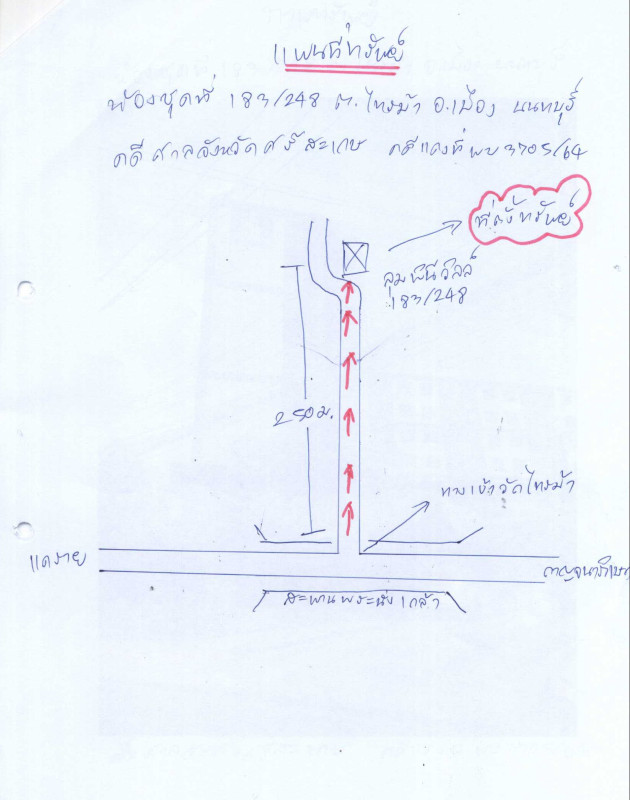 แผนที่ทรัพย์
ห้องชุดที่ 183/248 ต.ไทรม้า อ.เมือง นนทบุรี
คดี ศาลจังหวัดศรีสะเกษ คดีแดงที่ ผบ 3705/64
ที่ตั้งทรัพย์
ลุมพินีวิลล์
183/248
250 ม.
ทางเข้าวัดไทรม้า
แคราย
กาญจนาภิเษก
สะพานพระนั่งเกล้า